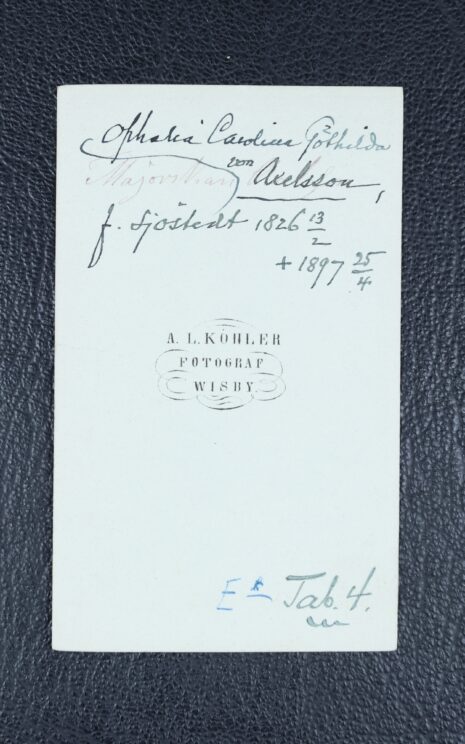 Ophelia Carolina Göthilda
Majorskan von Axelsson,
f. Sjöstedt 1826 13/2
+ 1897 25/4
A. L. KÖHLER
FOTOGRAF
WISBY.
Tab. 4.